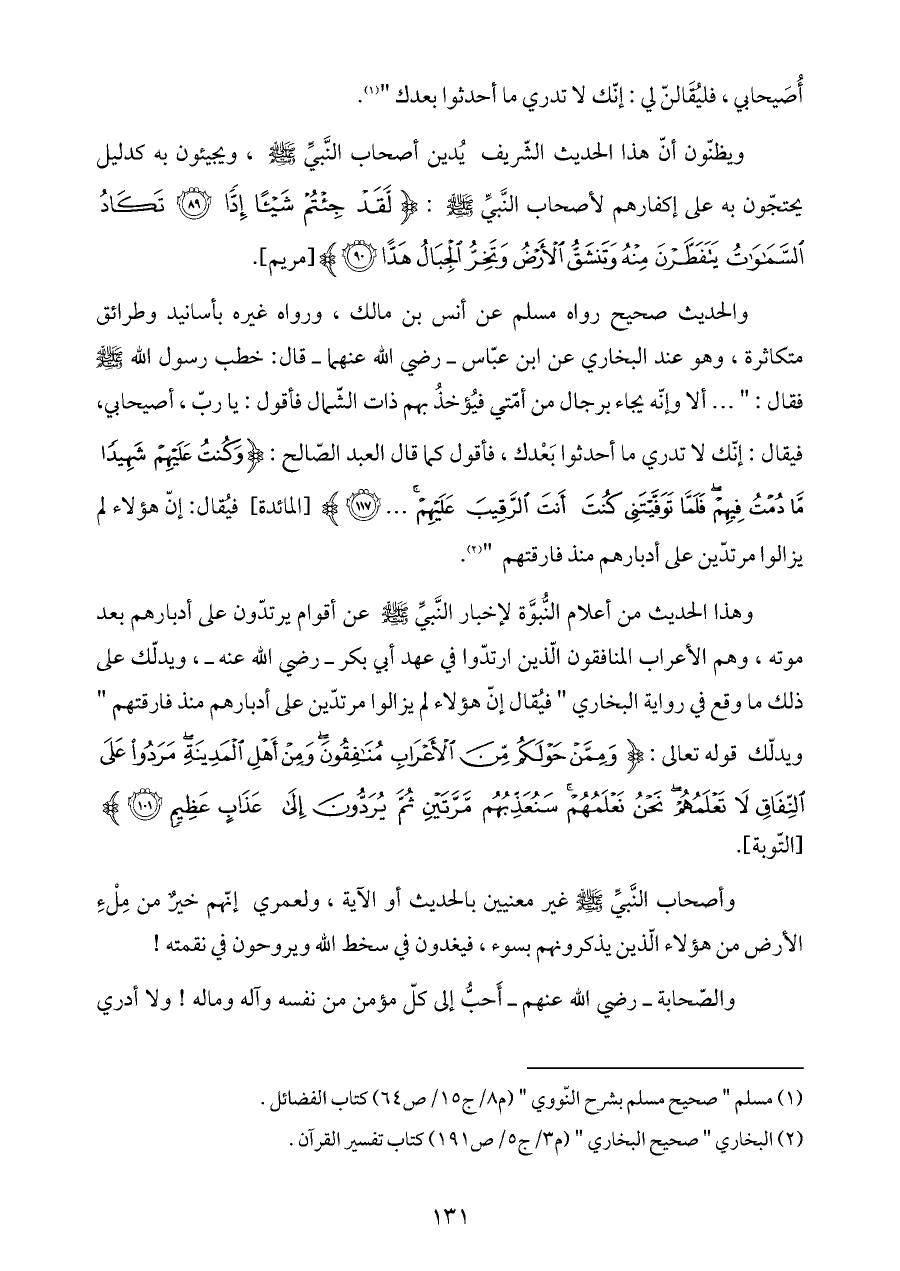 أُصَيحابي ، فليُقَالنّ لي : إنّك لا تدري ما أحدثوا بعدك "(١).
ويظنّون أنّ هذا الحديث الشّريف يُدين أصحاب النَّبيِّ ﷺ ، ويجيئون به كدليل
يحتجّون به على إكفارهم لأصحاب النَّبيِّ ﷺ : ﴿ لَّقَدۡ جِئۡتُمۡ شَيۡـًٔا إِدّٗا ٨٩ تَكَادُ
ٱلسَّمَٰوَٰتُ يَتَفَطَّرۡنَ مِنۡهُ وَتَنشَقُّ ٱلۡأَرۡضُ وَتَخِرُّ ٱلۡجِبَالُ هَدًّا ٩٠ ﴾ [مريم].
والحديث صحيح رواه مسلم عن أنس بن مالك ، ورواه غيره بأسانيد وطرائق
متكاثرة ، وهو عند البخاري عن ابن عبّاس ـ رضي الله عنهما ـ قال: خطب رسول الله ﷺ
فقال : " ... ألا وإنّه يجاء برجال من أمّتي فيُؤخذُ بهم ذات الشّمال فأقول : يا ربّ ، أصيحابي،
فيقال : إنّك لا تدري ما أحدثوا بَعْدك ، فأقول كما قال العبد الصّالح : ﴿ وَكُنتُ عَلَيۡهِمۡ شَهِيدٗا
مَّا دُمۡتُ فِيهِمۡۖ فَلَمَّا تَوَفَّيۡتَنِي كُنتَ أَنتَ ٱلرَّقِيبَ عَلَيۡهِمۡۚ ... ١١٧ ﴾ [المائدة] فيُقال: إنّ هؤلاء لم
يزالوا مرتدّين على أدبارهم منذ فارقتهم "(٢).
وهذا الحديث من أعلام النُّبوَّة لإخبار النَّبيِّ ﷺ عن أقوام يرتدّون على أدبارهم بعد
موته ، وهم الأعراب المنافقون الّذين ارتدّوا في عهد أبي بكر ـ رضي الله عنه ـ ، ويدلّك على
ذلك ما وقع في رواية البخاري " فيُقال إنّ هؤلاء لم يزالوا مرتدّين على أدبارهم منذ فارقتهم "
ويدلّك قوله تعالى : ﴿ وَمِمَّنۡ حَوۡلَكُم مِّنَ ٱلۡأَعۡرَابِ مُنَٰفِقُونَۖ وَمِنۡ أَهۡلِ ٱلۡمَدِينَةِۖ مَرَدُواْ عَلَى
ٱلنِّفَاقِ لَا تَعۡلَمُهُمۡۖ نَحۡنُ نَعۡلَمُهُمۡۚ سَنُعَذِّبُهُم مَّرَّتَيۡنِ ثُمَّ يُرَدُّونَ إِلَىٰ عَذَابٍ عَظِيمٖ ١٠١ ﴾
[التّوبة].
وأصحاب النَّبيِّ ﷺ غير معنيين بالحديث أو الآية ، ولعمري إنّهم خيرٌ من مِلْءِ
الأرض من هؤلاء الّذين يذكرونهم بسوء ، فيغدون في سخط الله ويروحون في نقمته !
والصّحابة ـ رضي الله عنهم ـ أَحبُّ إلى كلّ مؤمن من نفسه وآله وماله ! ولا أدري
(١) مسلم " صحيح مسلم بشرح النّووي " (م٨/ ج١٥/ ص٦٤) كتاب الفضائل .
(٢) البخاري " صحيح البخاري " (م٣/ ج٥/ ص١٩١) كتاب تفسير القرآن .
١٣١